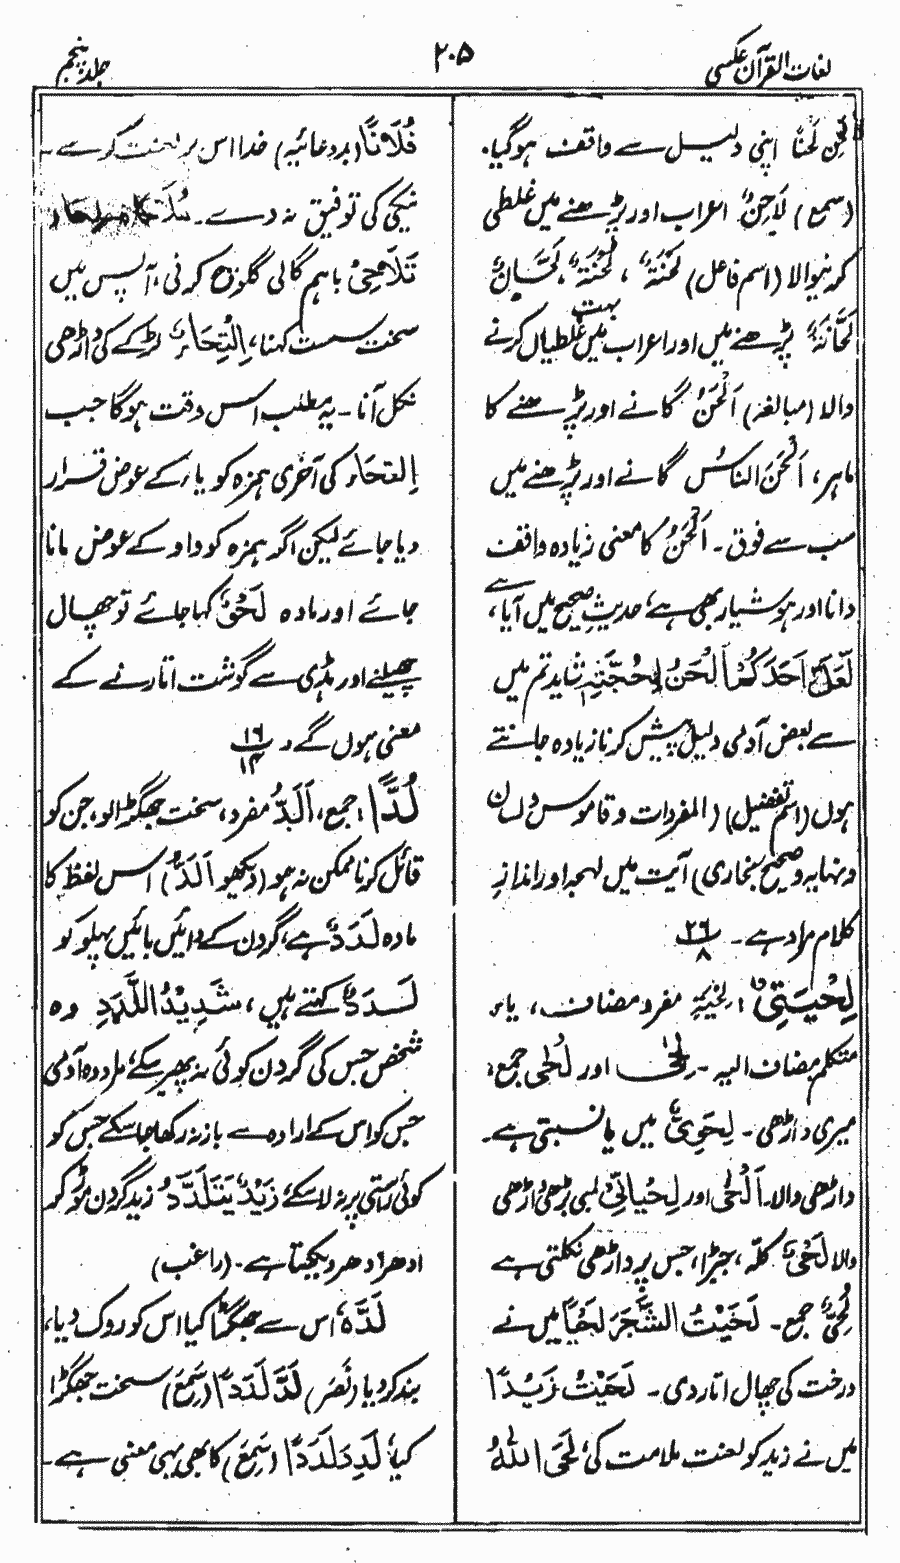 لغات القرآن عکسی
۲۰۵
جلد پنجم
لَحِنَ لَحَنًا اپنی دلیل سے واقف ہوگیا.
(سمع) لَاحِنٌ اعراب اور پڑھنے میں غلطی
کرنیوالا (اسم فاعل) لُحَنَۃٌ، لُحْنَۃٌ، لَحَّانٌ
لَحَّانَۃٌ پڑھنے میں اور اعراب میں بہت غلطیاں کرنے
والا (مبالغہ) اَلْحَنُ گانے اور پڑھنے کا
ماہر، اَلْحَنُ النَّاسِ گانے اور پڑھنے میں
سب سے فوق۔ اَلْحَنُ کا معنی زیادہ واقف
دانا اور ہوشیار بھی ہے، حدیثِ صحیح میں آیا ہے،
لَعَلَّ اَحَدَكُمْ اَلْحَنُ بِحُجَّتِہٖ شاید تم میں
سے بعض آدمی دلیل پیش کرنا زیادہ جانتے
ہوں (اسم تفضیل) (المفردات و قاموس و
و نہایہ و صحیح بخاری) آیت میں لہجہ اور اندازِ
کلام مراد ہے۔ ۲۶/۸
لِحْیَتِیْ: لِحْیَۃِ مفرد مضاف، یاء
متکلم مضاف الیہ۔ لِحًى اور لُحًى جمع،
میری داڑھی۔ لِحَوِیٌّ میں یا نسبتی ہے۔
داڑھی والا۔ اَلْحٰی اور لِحْیَانِیٌّ لمبی بڑھی داڑھی
والا لَحْیٌ کلّہ، جبڑا، جس پر داڑھی نکلتی ہے
لُحِیٌّ جمع۔ لَحَیْتُ الشَّجَرَ لَحْیًا میں نے
درخت کی چھال اتار دی۔ لَحَیْتُ زَیْدًا
میں نے زید کو لعنت ملامت کی، لَحَی اللّٰہُ
فُلَانًا (بددعائیہ) خدا اس پر لعنت کرے۔
نیکی کی توفیق نہ دے۔
تَلَاحِیْ باہم گالی گلوچ کرنی، آپس میں
سخت سست کہنا، اِلْتِحَاءٌ لڑکے کی داڑھی
نکل آنا۔ یہ مطلب اس وقت ہوگا جب
اِلتحَاء کی آخری ہمزہ کو یاء کے عوض قرار
دیا جائے لیکن اگر ہمزہ کو واو کے عوض مانا
جائے اور مادہ لَحْوٌ کہا جائے تو چھال
چھیلنے اور ہڈی سے گوشت اتارنے کے
معنی ہوں گے۔ ۱۶/۱۴
لُدًّا: جمع، اَلَدُّ مفرد، سخت جھگڑالو، جن کو
قائل کرنا ممکن نہ ہو (دیکھو اَلَدُّ) اس لفظ کا
مادہ لَدَدٌ ہے، گردن کے دائیں بائیں پہلو کو
لَدَدٌ کہتے ہیں، شَدِیْدُ اللَّدَدِ وہ
شخص جس کی گردن کوئی نہ پھیر سکے، مراد وہ آدمی
جس کو اس کے ارادہ سے باز نہ رکھا جا سکے جس کو
کوئی راستی پر نہ لا سکے، زَیْدٌ یَتَلَدَّدُ زید گردن موڑ کر
ادھر ادھر دیکھتا ہے۔ (راغب)
لَدَّہٗ، اس سے جھگڑا کیا اس کو روک دیا،
بند کردیا (نَصَرَ) لَدَّ لَدَدًا (سَمِعَ) سخت جھگڑا
کیا، لَدِدَ لَدَدًا (سَمِعَ) کا بھی یہی معنی ہے۔